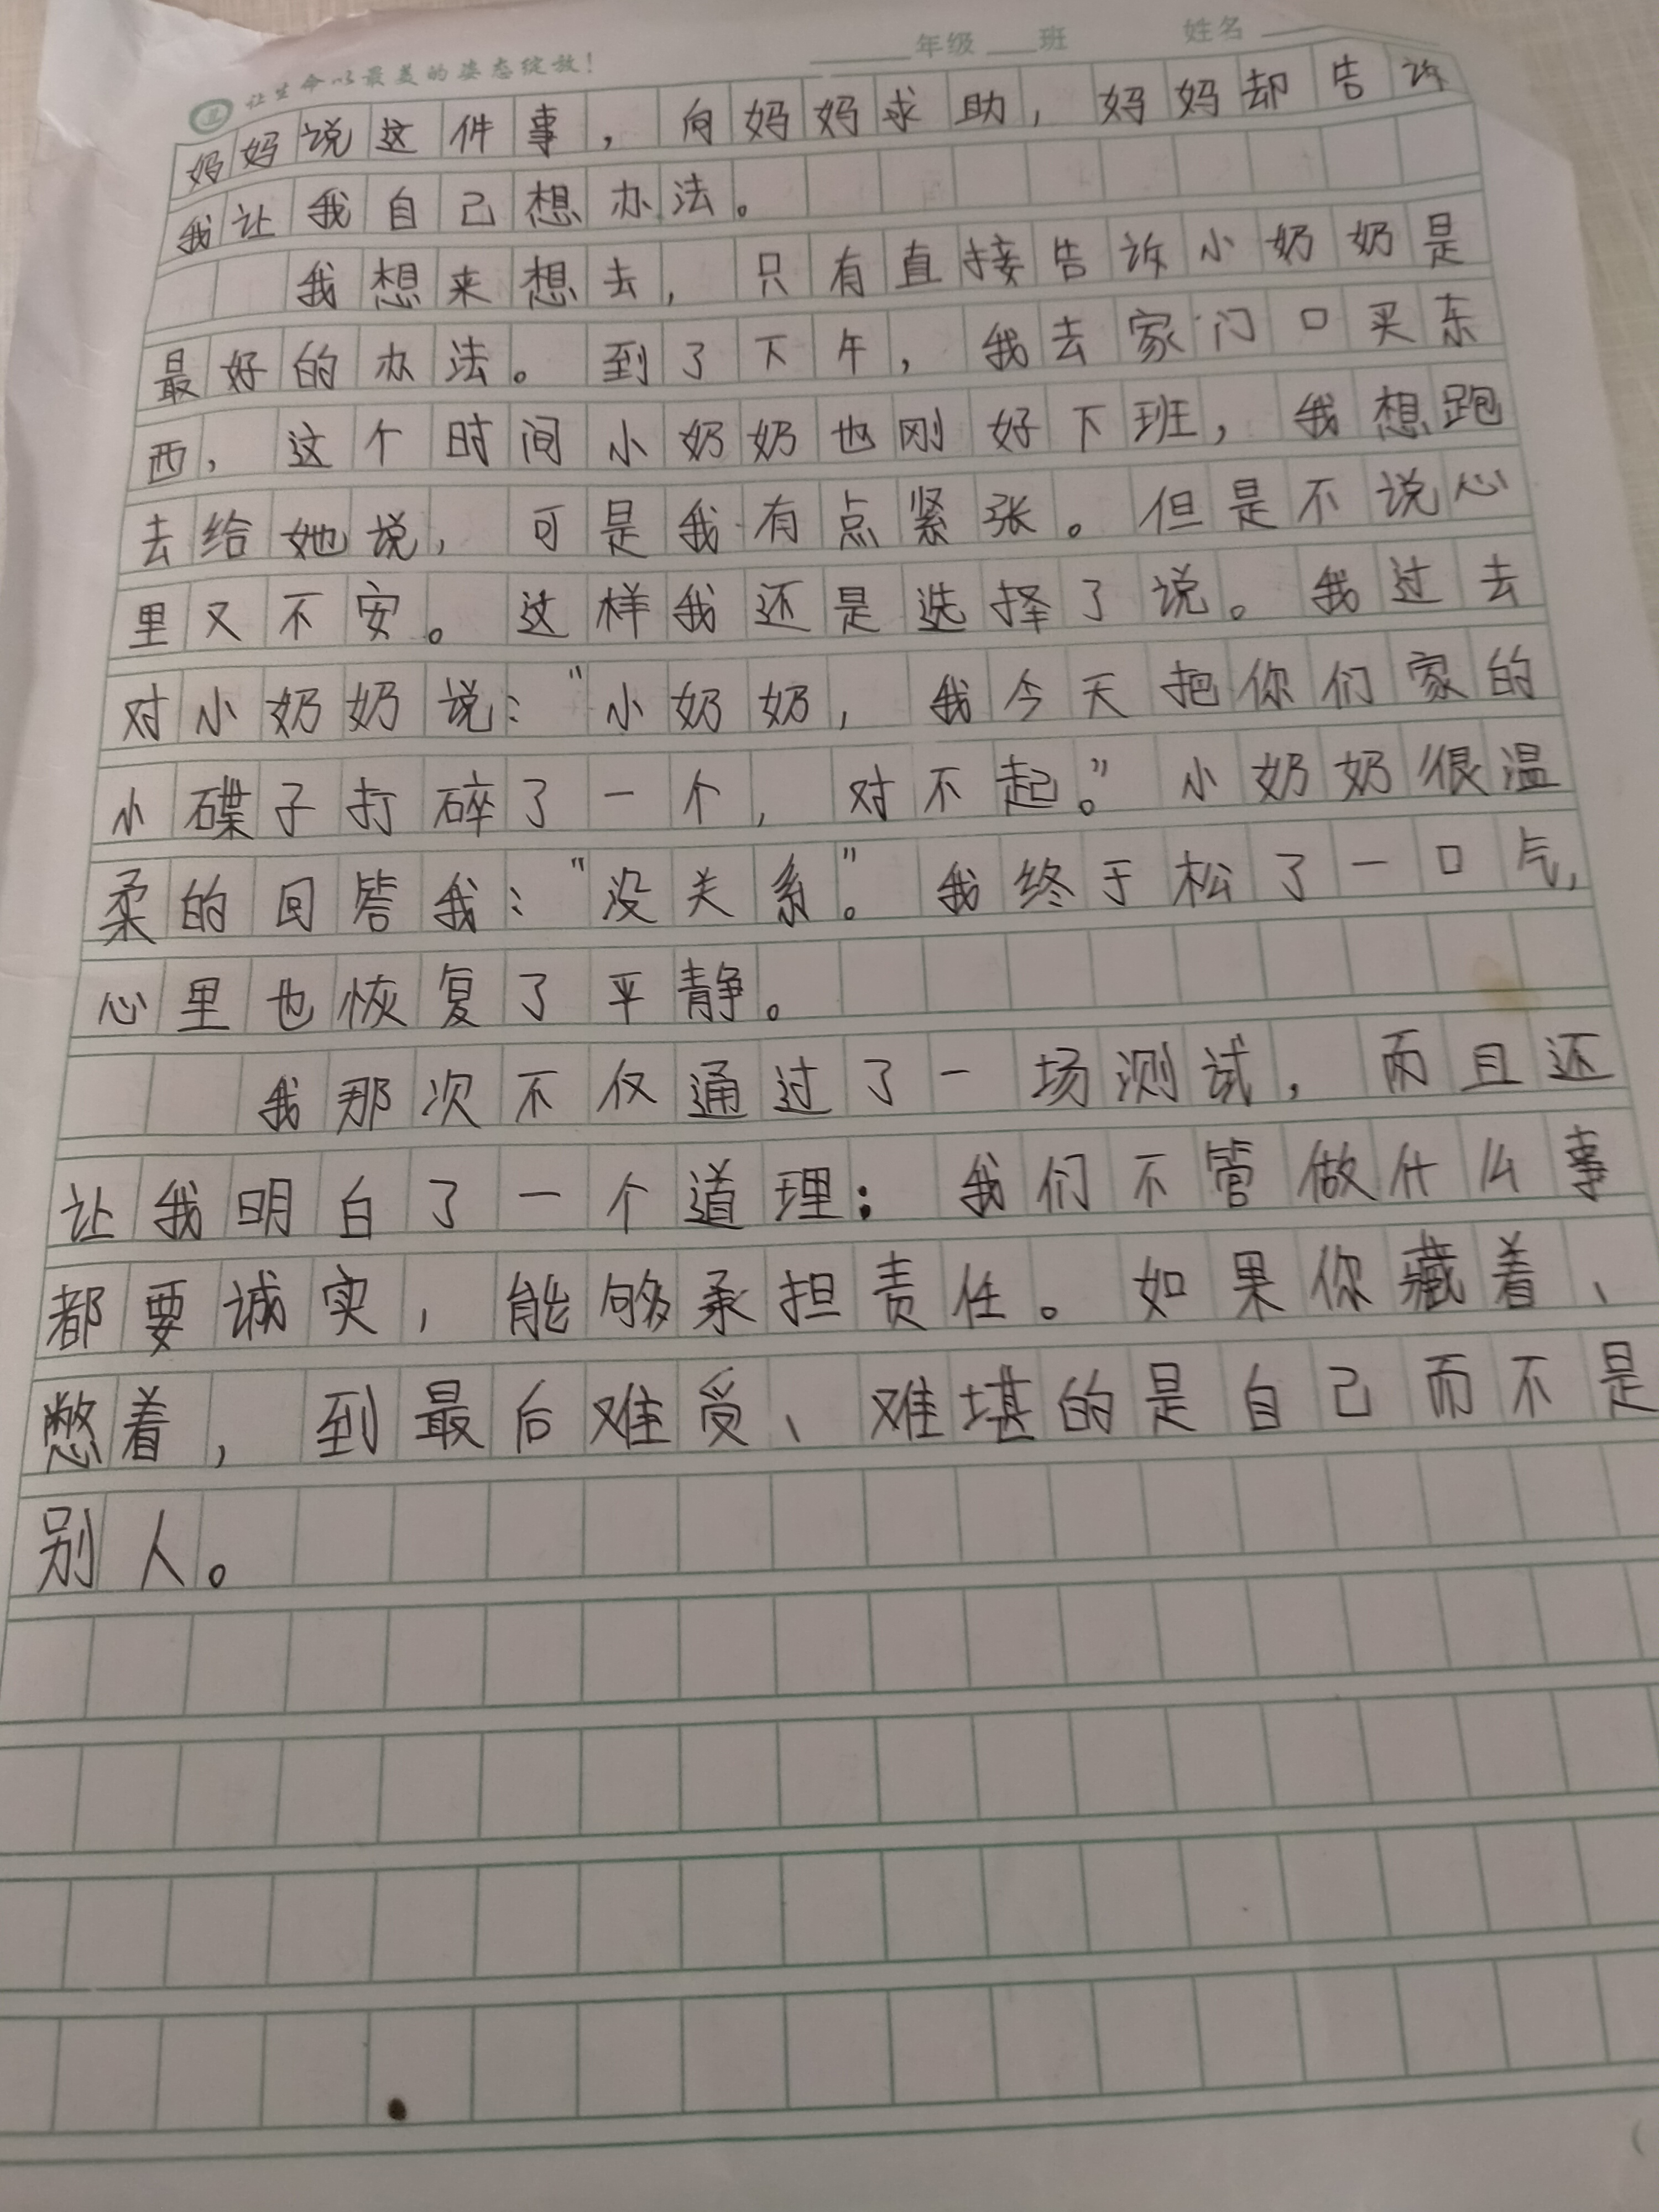 让生命以最美的姿态绽放！ ____年级 ___班 姓名
妈妈说这件事，向妈妈求助，妈妈却告诉
我让我自己想办法。
我想来想去，只有直接告诉小奶奶是
最好的办法。到了下午，我去家门口买东
西，这个时间小奶奶也刚好下班，我想跑
去给她说，可是我有点紧张。但是不说心
里又不安。这样我还是选择了说。我过去
对小奶奶说：“小奶奶，我今天把你们家的
小碟子打碎了一个，对不起。”小奶奶很温
柔的回答我：“没关系。”我终于松了一口气，
心里也恢复了平静。
我那次不仅通过了一场测试，而且还
让我明白了一个道理：我们不管做什么事
都要诚实，能够承担责任。如果你藏着、
憋着，到最后难受、难堪的是自己而不是
别人。